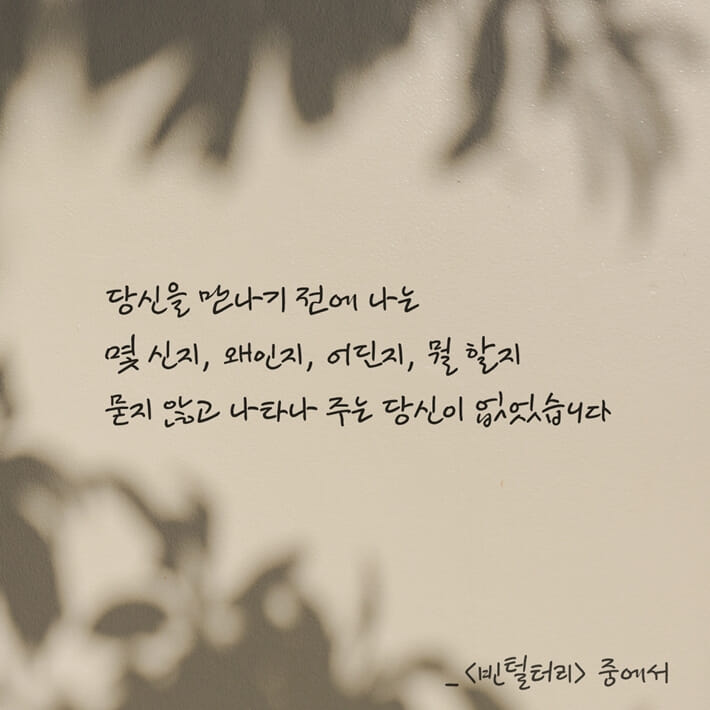 당신을 만나기 전에 나는
몇 신지, 왜인지, 어딘지, 뭘 할지
묻지 않고 나타나 주는 당신이 없었습니다
_<빈털터리> 중에서